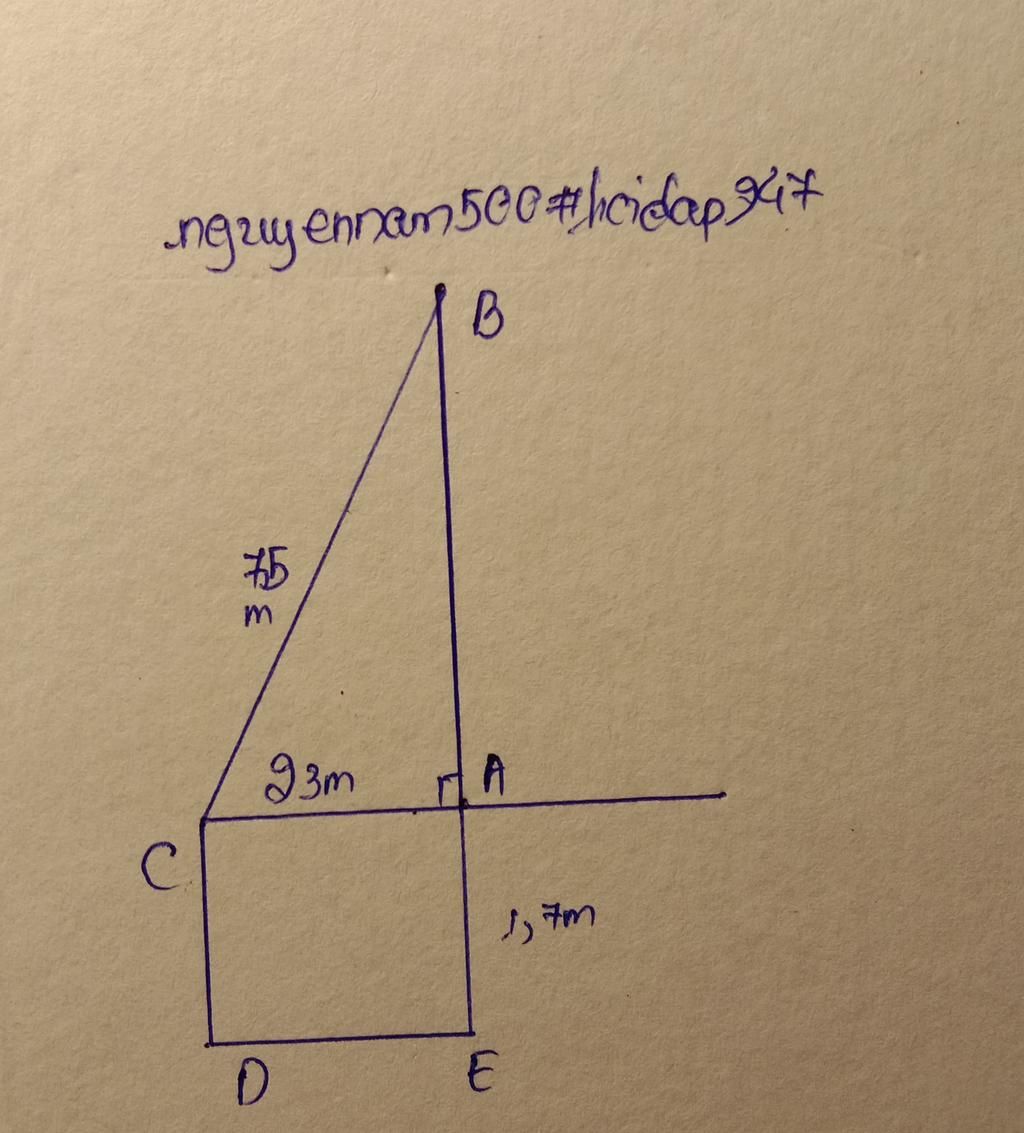 nguyennam500#hoidap247
B
75
m
23m
A
C
1,7m
D
E